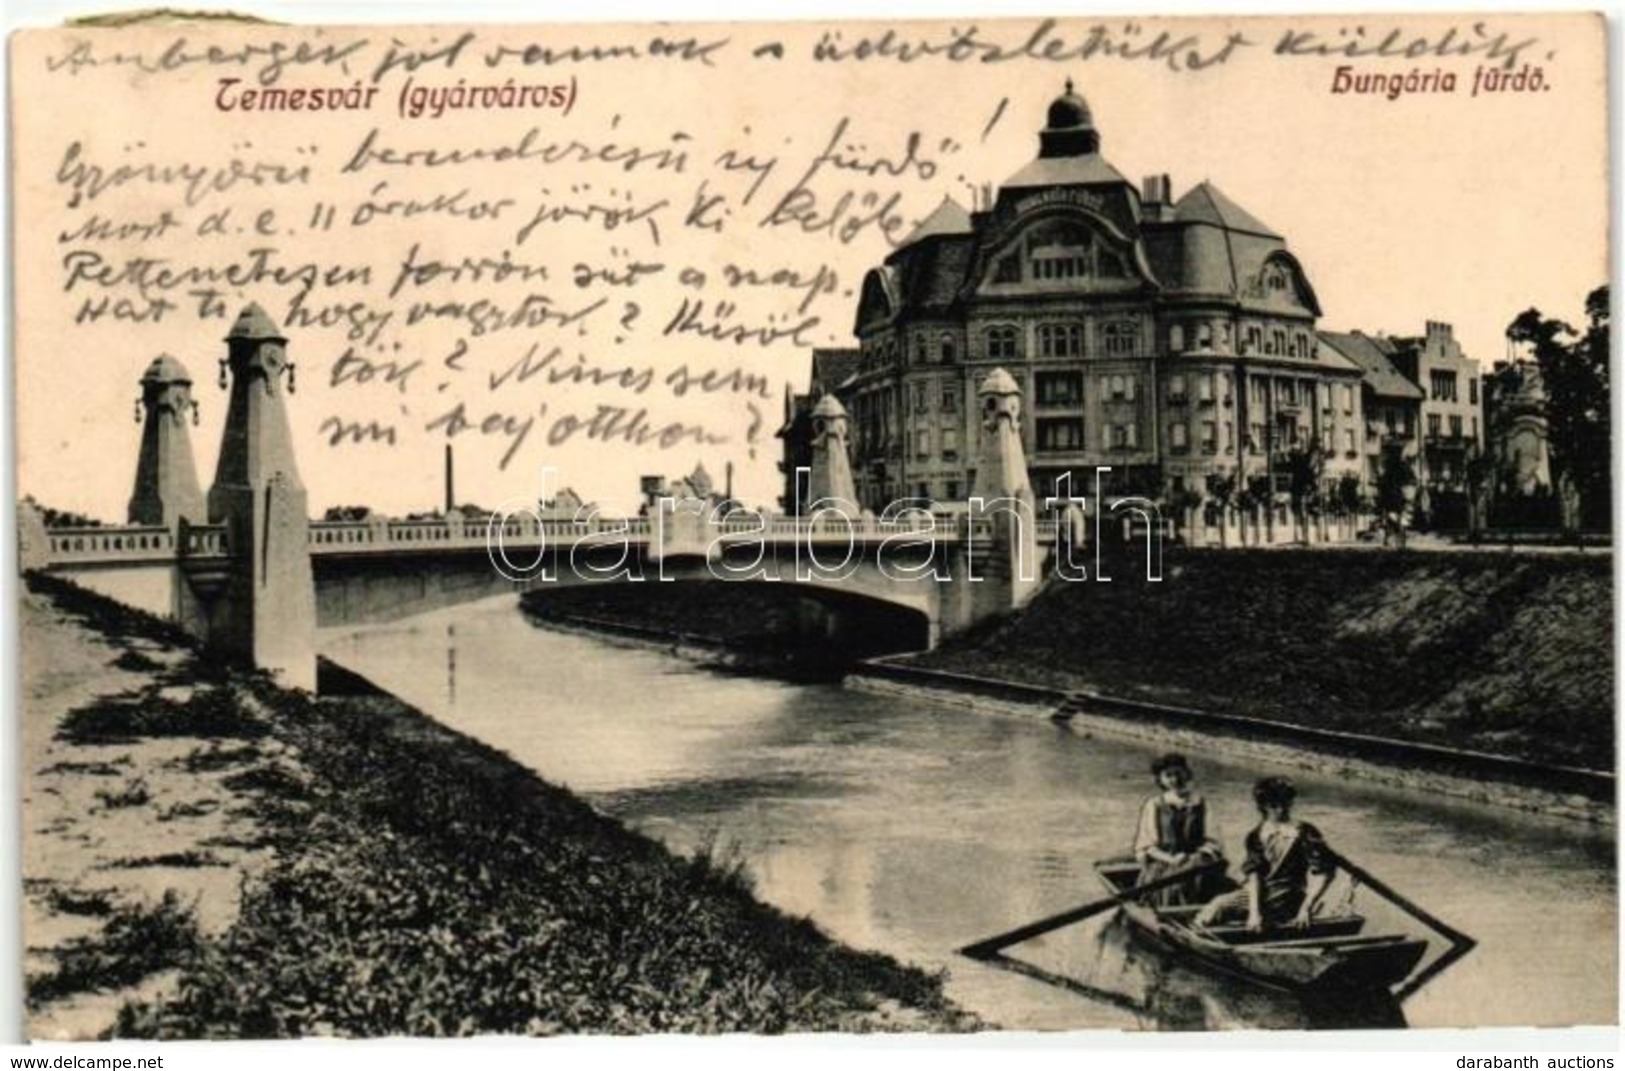 Ambergék jól vannak s üdvözletüket küldik.
Temesvár (gyárváros)
Hungária fürdő.
Gyönyörű berendezésű új fürdő!
Most d. e. 11 órakor jövök ki belőle.
Rettenetesen forrón süt a nap.
Hát ti hogy vagytok?
tök? Nincs sem
mi baj otthon?
darabanth
www.delcampe.net
darabanth auctions